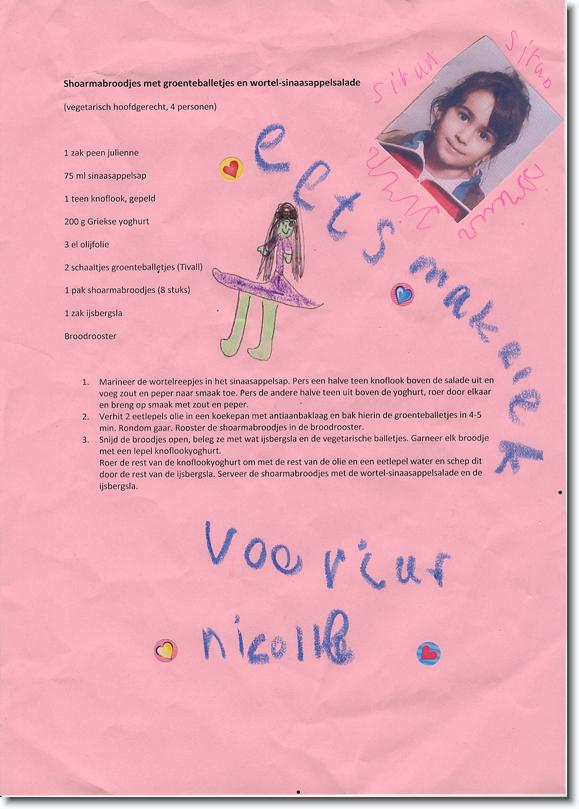 Shoarmabroodjes met groenteballetjes en wortel-sinaasappelsalade
(vegetarisch hoofdgerecht, 4 personen)
1 zak peen julienne
75 ml sinaasappelsap
1 teen knoflook, gepeld
200 g Griekse yoghurt
3 el olijfolie
2 schaaltjes groenteballetjes (Tivall)
1 pak shoarmabroodjes (8 stuks)
1 zak ijsbergsla
Broodrooster
eets makelek
1. Marineer de wortelreepjes in het sinaasappelsap. Pers een halve teen knoflook boven de salade uit en
voeg zout en peper naar smaak toe. Pers de andere halve teen uit boven de yoghurt, roer door elkaar
en breng op smaak met zout en peper.
2. Verhit 2 eetlepels olie in een koekepan met antiaanbaklaag en bak hierin de groenteballetjes in 4-5
min. Rondom gaar. Rooster de shoarmabroodjes in de broodrooster.
3. Snijd de broodjes open, beleg ze met wat ijsbergsla en de vegetarische balletjes. Garneer elk broodje
met een lepel knoflookyoghurt.
Roer de rest van de knoflookyoghurt om met de rest van de olie en een eetlepel water en schep dit
door de rest van de ijsbergsla. Serveer de shoarmabroodjes met de wortel-sinaasappelsalade en de
ijsbergsla.
voor juf
nicolle